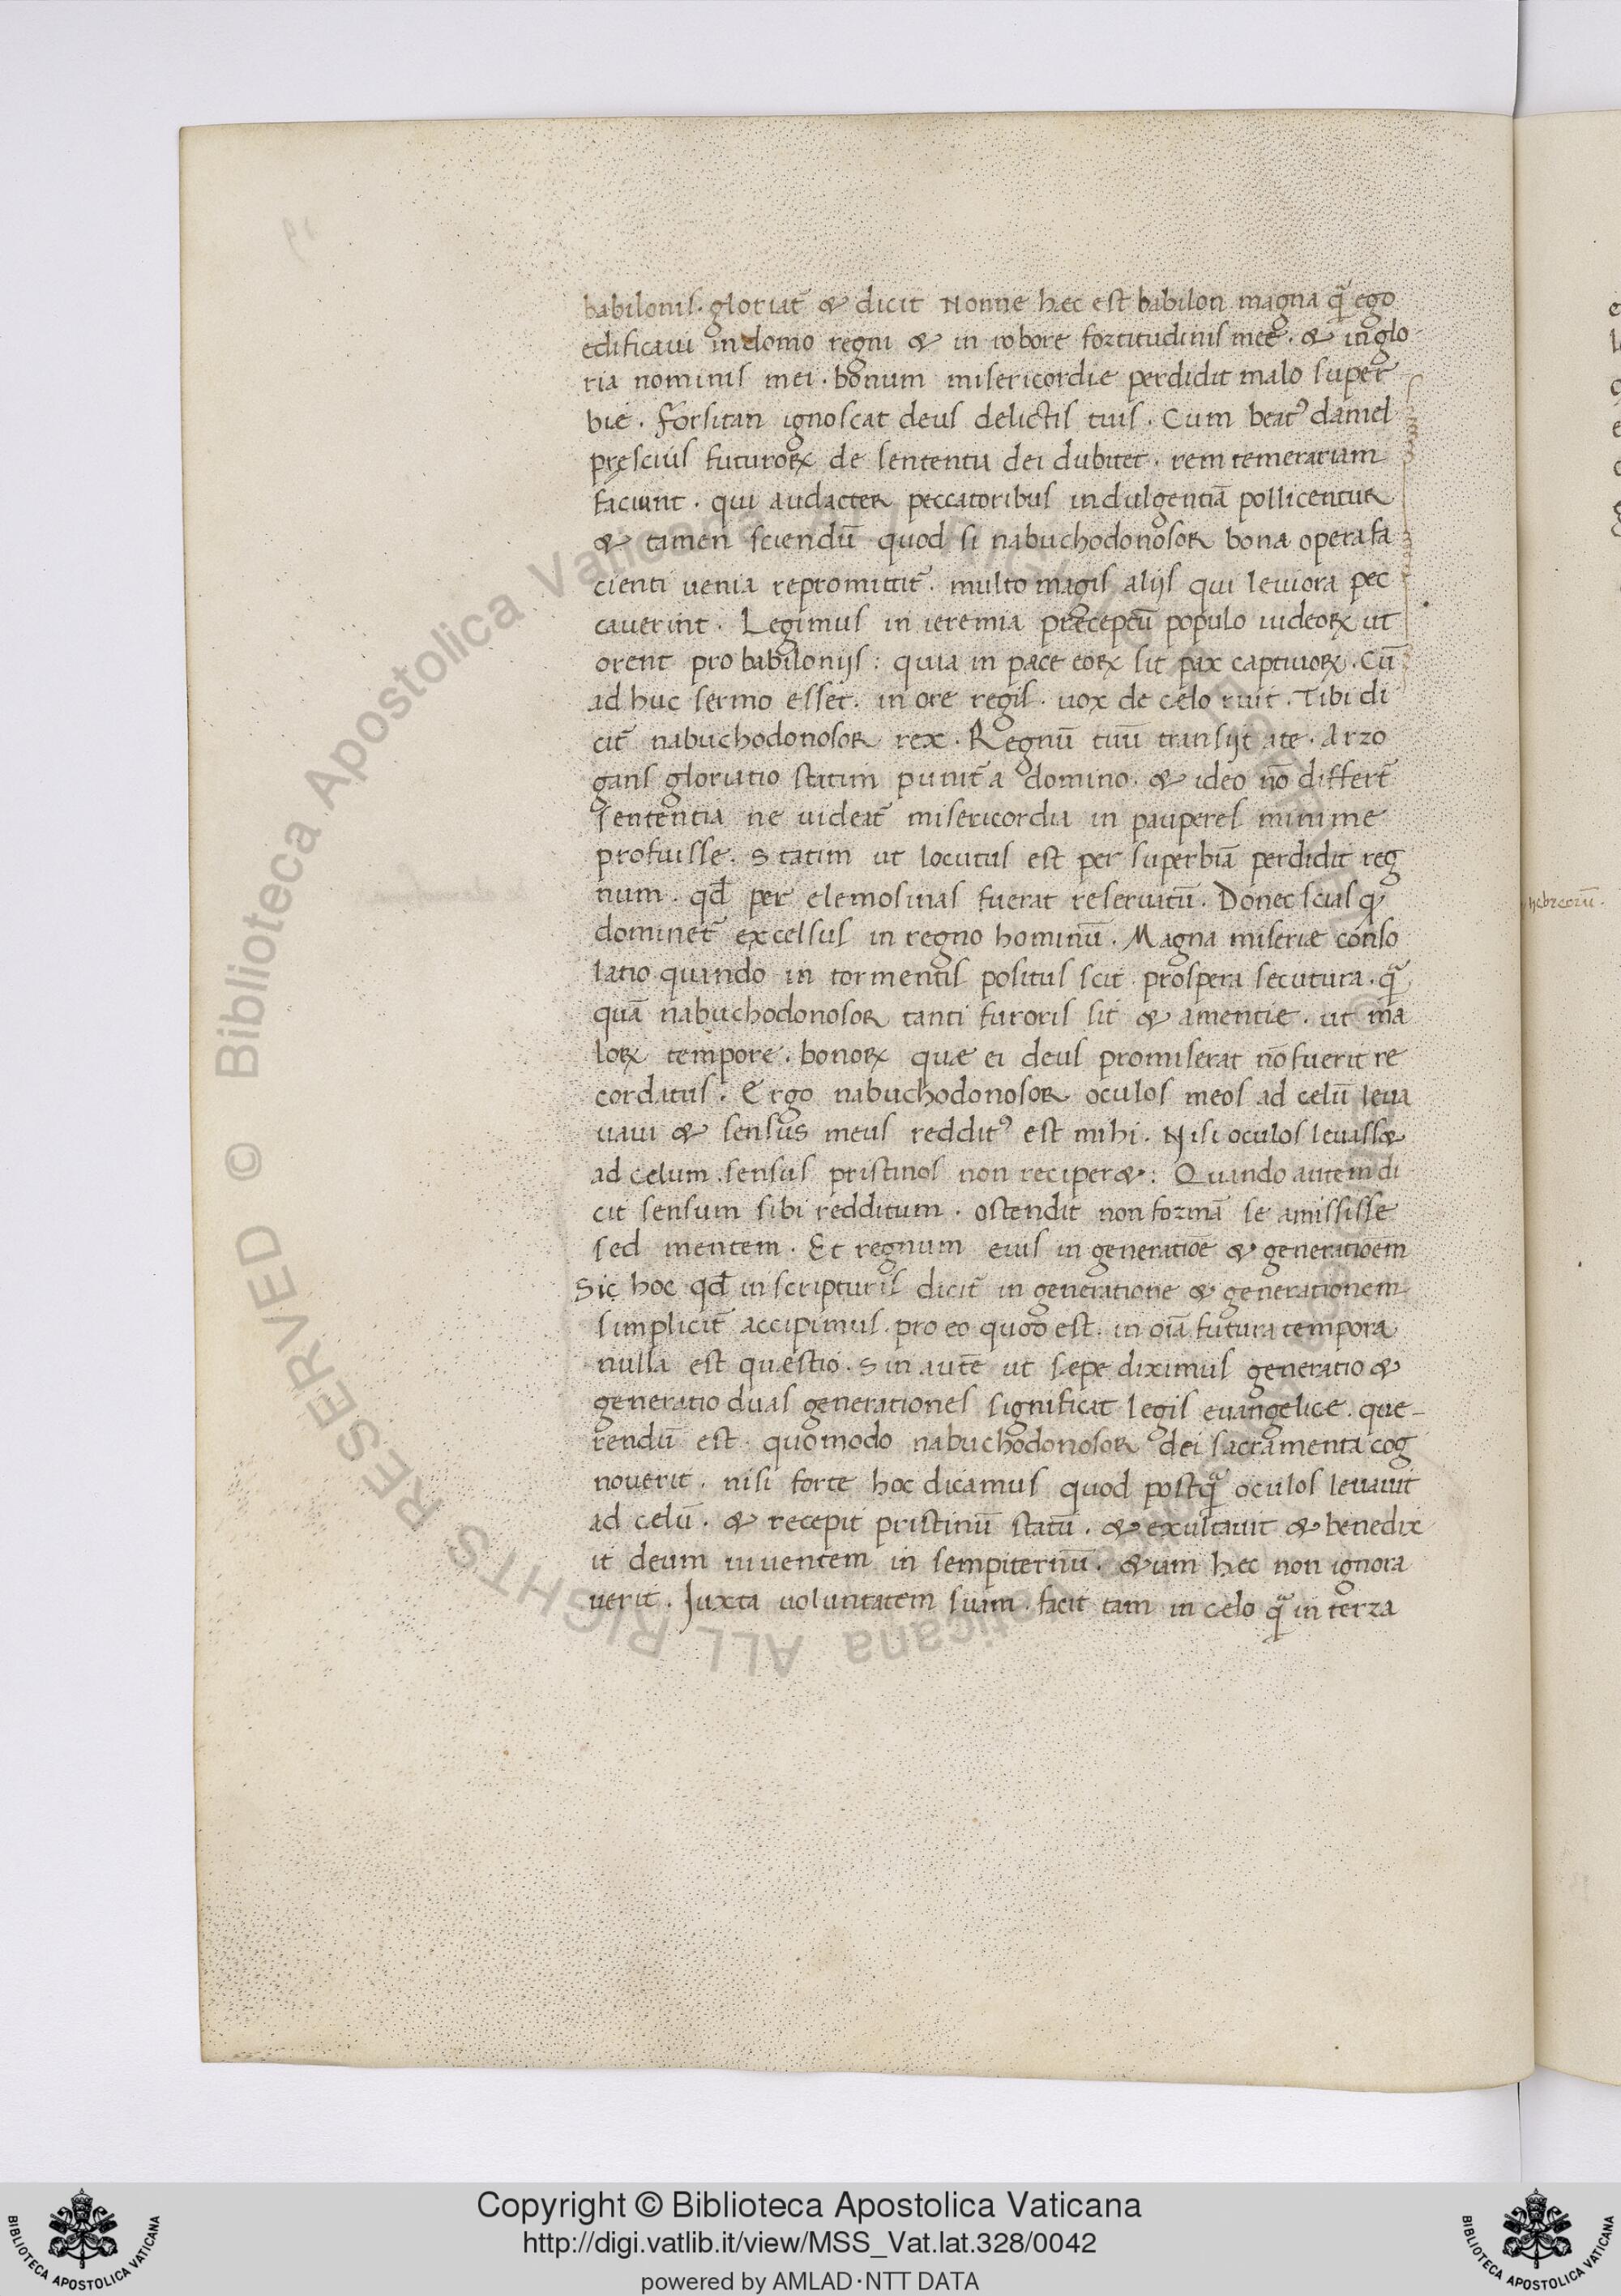 babilonis · gloriat̄ & dicit Nonne hæc est babilon magna quā ego
edificaui in domo regni & in robore fortitudinis meę · & in glo
ria nominis mei · bonum misericordie perdidit malo super
bie · Forsitan ignoscat deus delictis tuis · Cum beatꝰ daniel
pręscius futuroꝝ de sententia dei dubitet · rem temerariam
faciunt · qui audacter peccatoribus indulgentiā pollicentur
& tamen sciendū quod si nabuchodonosor bona opera fa
cienti uenia repromittit̄ · multo magis alijs qui leuiora pec
cauerint · Legimus in ieremia præceptū populo iudeoꝝ ut
orent pro babilonijs : quia in pace eoꝝ sit pax captiuoꝝ · Cū
ad huc sermo esset · in ore regis · uox de cælo ruit · Tibi di
cit̄ nabuchodonosor rex · Regnū tuū transijt a te · Arro
gans gloriatio statim punit̄ a domino · & ideo nō differt̄
sententia ne uideat̄ misericordia in pauperes minime
profuisse · Statim ut locutus est per superbiā perdidit reg
num · qđ per elemosinas fuerat reseruatū · Donec scias ꝙ
dominet̄ excelsus in regno hominū · Magna miseriæ conso
latio quando in tormentis positus scit prospera secutura · quā
quā nabuchodonosor tanti furoris sit & amentie · ut ma
loꝝ tempore · bonoꝝ quæ ei deus promiserat nō fuerit re
cordatus · Ergo nabuchodonosor oculos meos ad celū leua
uaui & sensus meus redditꝰ est mihi · Nisi oculos leuass&
ad celum sensus pristinos non reciper& : Quando autem di
cit sensum sibi redditum · ostendit non formā se amississe
sed mentem · Et regnum eius in generatiōe & generatiōem
Sic hoc qđ in scripturis dicit̄ in generatione & generationem
simplicit̄ accipimus · pro eo quod est · in oīa futura tempora
nulla est quæstio · Sin autē ut sæpe diximus generatio &
generatio duas generationes significat legis euangelice · que-
rendū est · quomodo nabuchodonosor dei sacramenta cog
nouerit · nisi forte hoc dicamus quod postquā oculos leuauit
ad celū · & recepit pristinū statū · & exultauit & benedix
it deum uiuentem in sempiternū · &iam hec non ignora
uerit · Juxta uoluntatem suam · facit tam in celo quā in terra
hebreorū ·
Copyright © Biblioteca Apostolica Vaticana
http://digi.vatlib.it/view/MSS_Vat.lat.328/0042
powered by AMLAD·NTT DATA